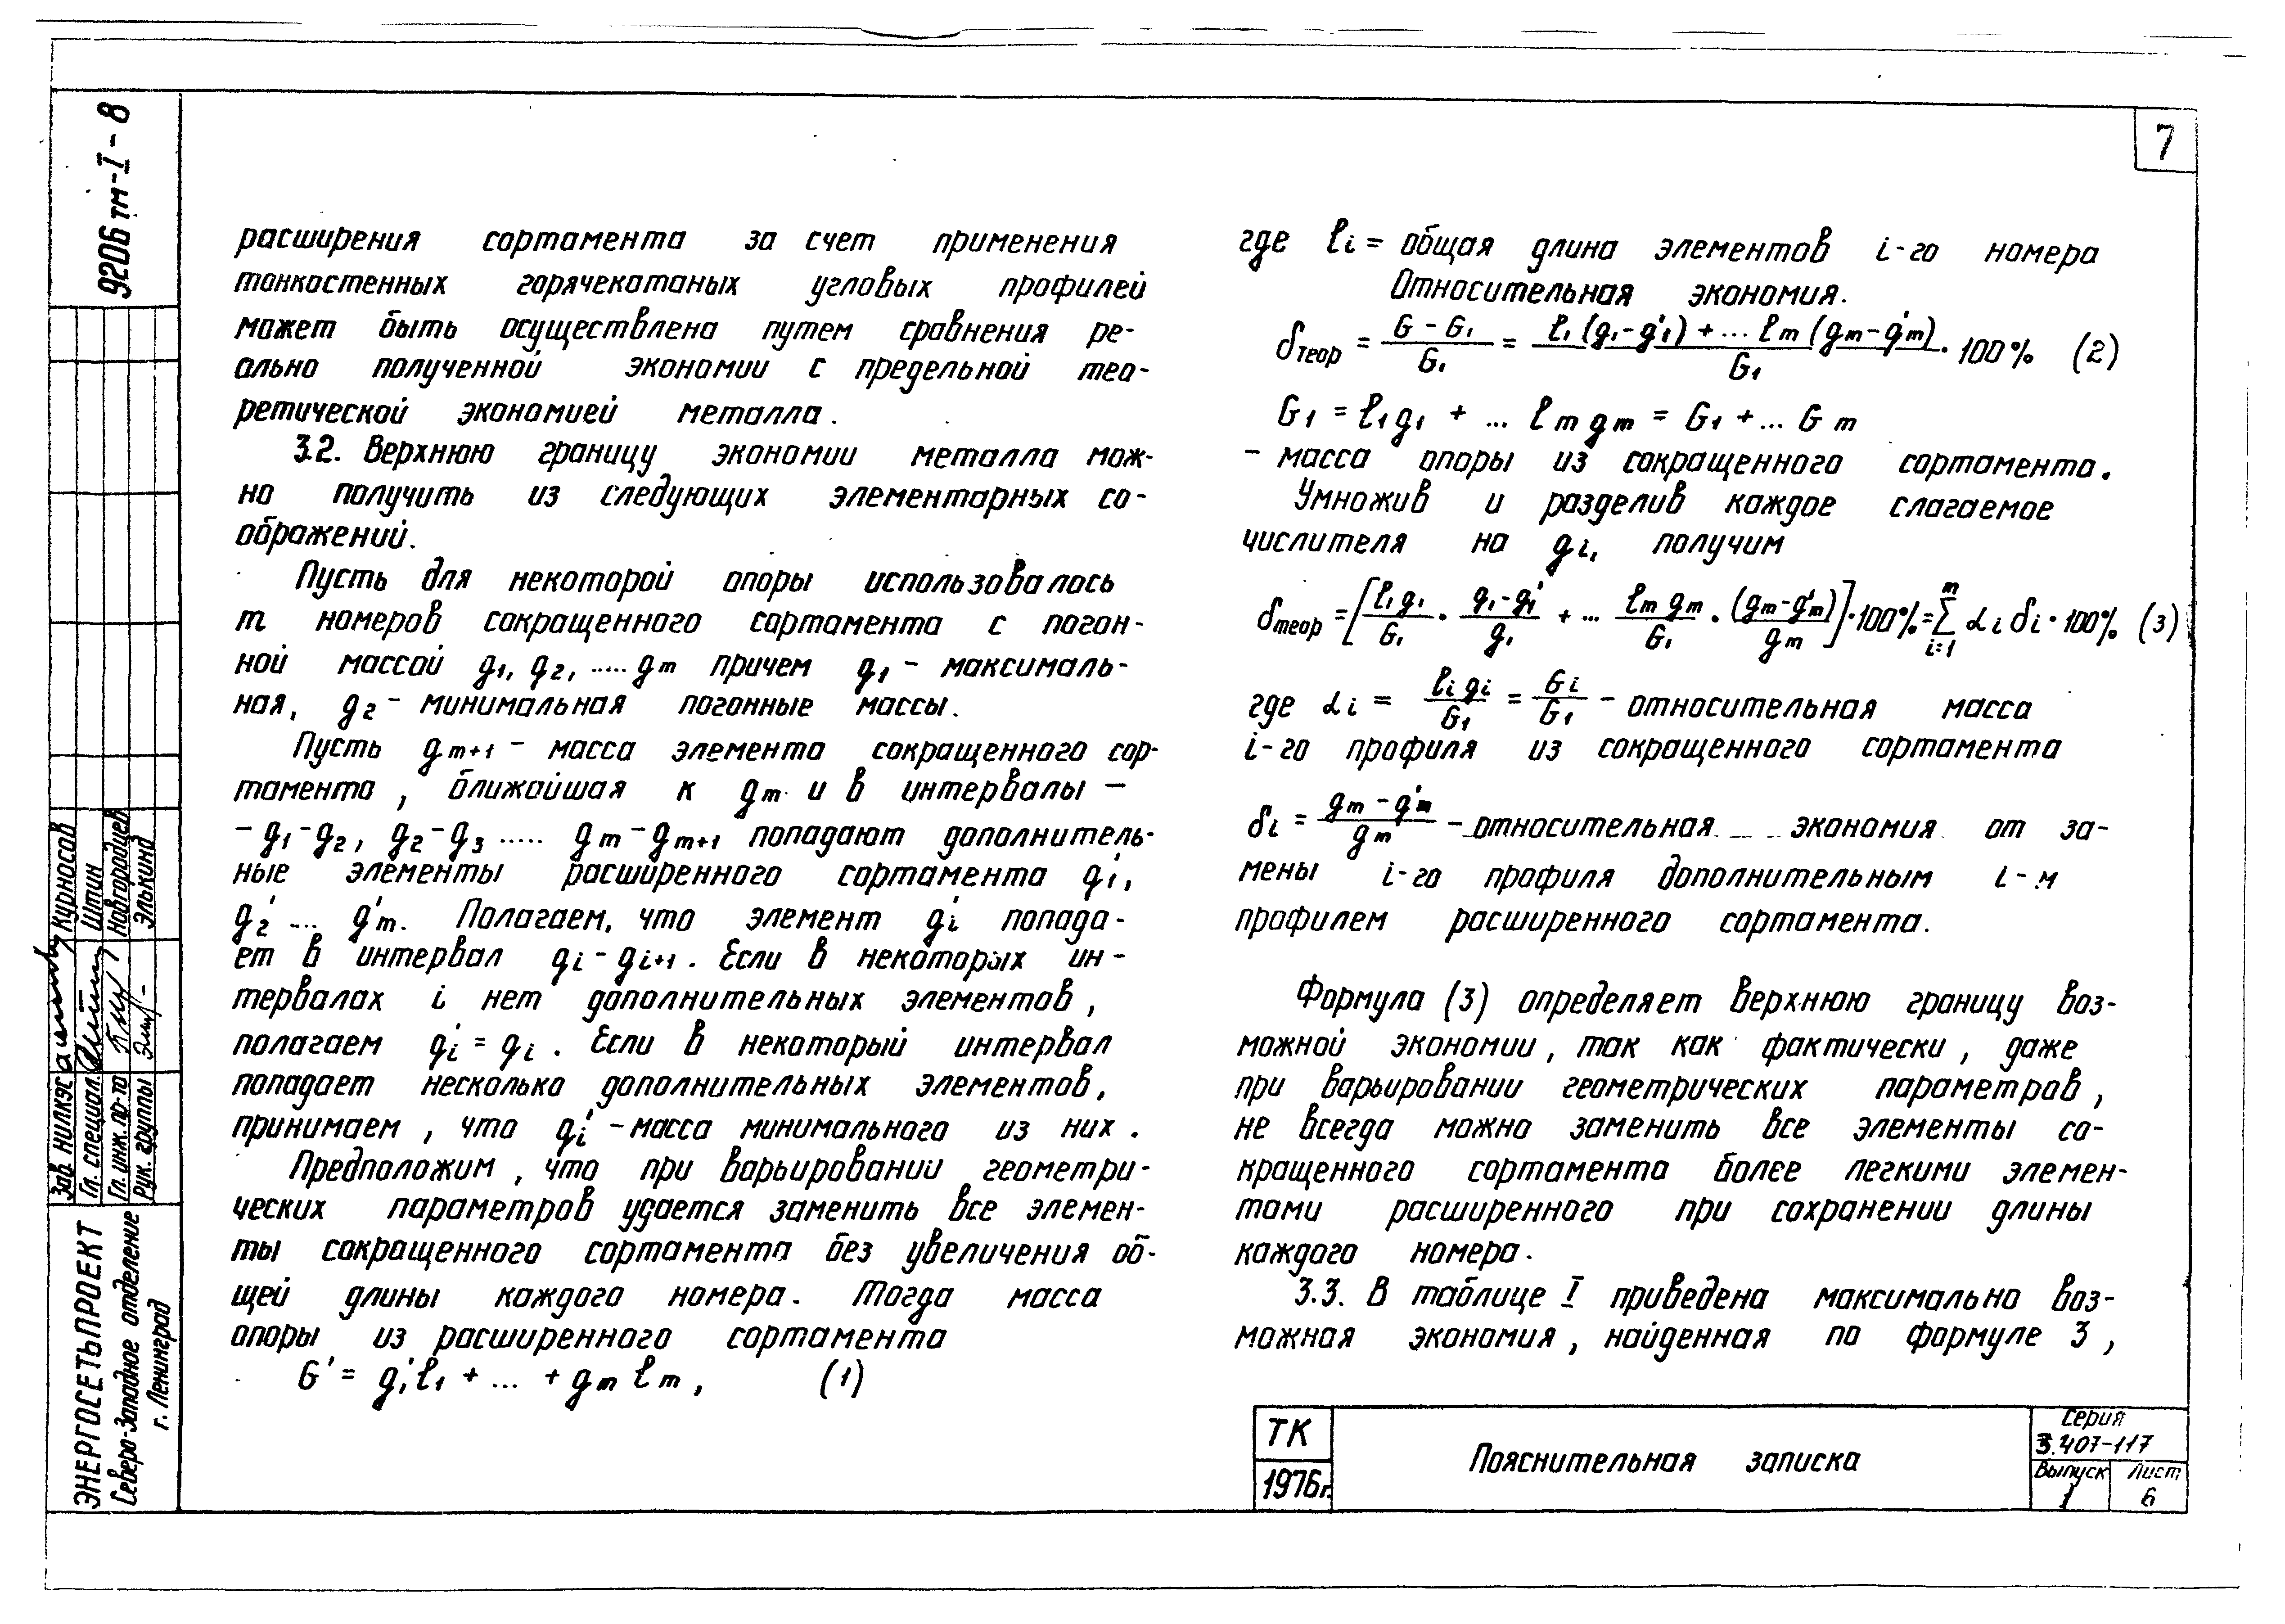 7
9206 тм-I-8
расширения сортамента за счет применения
тонкостенных горячекатаных угловых профилей
может быть осуществлена путем сравнения ре-
ально полученной экономии с предельной тео-
ретической экономией металла.
3.2. Верхнюю границу экономии металла мож-
но получить из следующих элементарных со-
ображений.
Пусть для некоторой опоры использовалось
m номеров сокращенного сортамента с погон-
ной массой g1, g2, ..... gm причем g1 - максималь-
ная, g2 - минимальная погонные массы.
Пусть gm+1 - масса элемента сокращенного сор-
тамента, ближайшая к gm и в интервалы -
- g1-g2, g2-g3 ..... gm-gm+1 попадают дополнитель-
ные элементы расширенного сортамента g'1,
g'2 ... g'm. Полагаем, что элемент g'i попада-
ет в интервал gi-gi+1. Если в некоторых ин-
тервалах i нет дополнительных элементов,
полагаем g'i = gi. Если в некоторый интервал
попадает несколько дополнительных элементов,
принимаем, что g'i - масса минимального из них.
Предположим, что при варьировании геометри-
ческих параметров удается заменить все элемен-
ты сокращенного сортамента без увеличения об-
щей длины каждого номера. Тогда масса
опоры из расширенного сортамента
G' = g'1 l1 + ... + gm lm, (1)
где li = общая длина элементов i-го номера
Относительная экономия.
δтеор = (G - G1)/G1 = (l1 (g1-g'1) + ... lm (gm-g'm))/G1 · 100% (2)
G1 = l1g1 + ... lm gm = G1 + ... Gm
- масса опоры из сокращенного сортамента.
Умножив и разделив каждое слагаемое
числителя на gi, получим
δтеор = [l1g1/G1 · (g1-g'1)/g1 + ... lm gm/G1 · (gm-g'm)/gm] · 100% = Σ(i=1, m) αi δi · 100% (3)
где αi = li gi/G1 = Gi/G1 - относительная масса
i-го профиля из сокращенного сортамента
δi = (gm-g'm)/gm - относительная экономия от за-
мены i-го профиля дополнительным i-м
профилем расширенного сортамента.
Формула (3) определяет верхнюю границу воз-
можной экономии, так как фактически, даже
при варьировании геометрических параметров,
не всегда можно заменить все элементы со-
кращенного сортамента более легкими элемен-
тами расширенного при сохранении длины
каждого номера.
3.3. В таблице I приведена максимально воз-
можная экономия, найденная по формуле 3,
Зав. НИЛКЭС Курносов
Гл. специал. Штин
Гл. инж. пр-та Новгородцев
Рук. группы Элькинд
ЭНЕРГОСЕТЬПРОЕКТ
Северо-Западное отделение
г. Ленинград
ТК
1976г.
Пояснительная записка
Серия
3.407-117
Выпуск
1
Лист
6